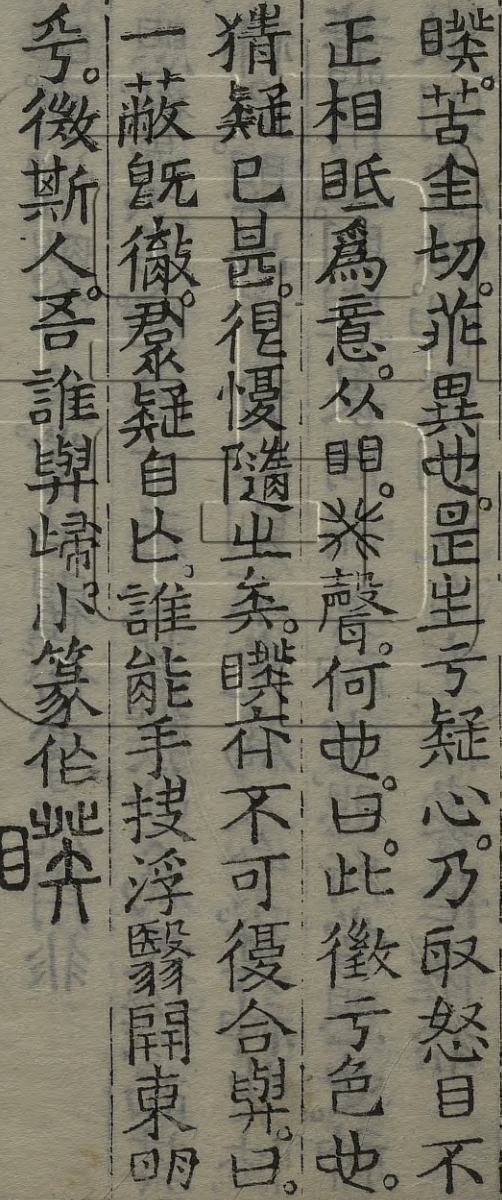 睽。苦圭切。乖異也。是生亏疑心。乃取怒目不
正相眡爲意。从䀠。癸聲。何也。曰。此徵亏色也。
猜疑已甚。很慢隨㞢矣。睽乖不可復合與。曰。
一蔽旣徹。羣疑自亡。誰能手捘浮翳開東明
乎。微斯人。吾誰與歸。小篆作睽